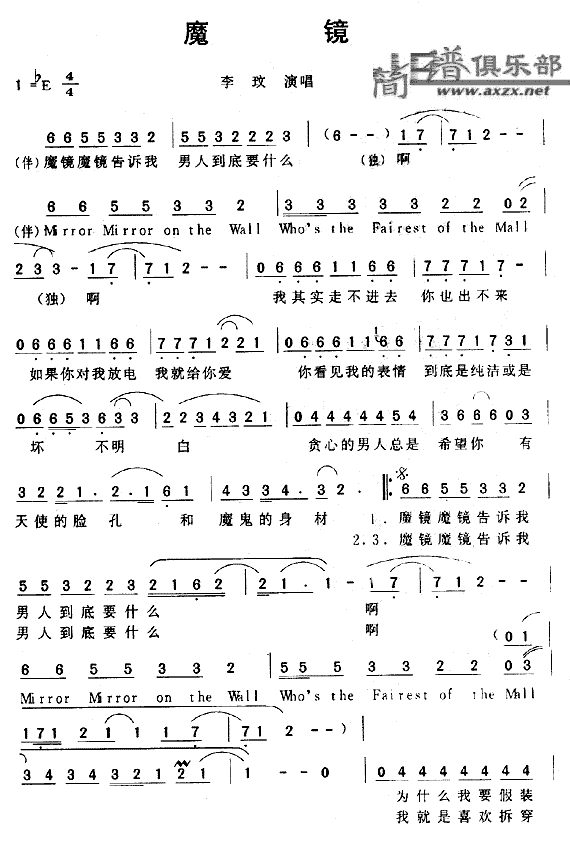 魔 镜
简谱俱乐部
www.axzx.net
1=♭E 4/4 李 玟 演唱
6 6 5 5 3 3 2 | 5 5 3 2 2 2 3 | （6 - -）1 7 | 7 1 2 - - |
(伴)魔镜魔镜告诉我 男人到底要什么 (独) 啊
6 6 5 5 3 3 2 | 5 5 5 3 3 2 2 02 |
(伴)Mirror Mirror on the Wall Who's the Fairest of the Mall
2 3 3 - 1 7 | 7 1 2 - - | 0 6 6 6 1 1 6 6 | 7 7 7 1 7 - |
(独) 啊 我其实走不进去 你也出不来
0 6 6 6 1 1 6 6 | 7 7 7 1 2 2 1 | 0 6 6 6 1 1 6 6 | 7 7 7 1 7 3 1 |
如果你对我放电 我就给你爱 你看见我的表情 到底是纯洁或是
0 6 6 5 3 6 3 3 | 2 2 3 4 3 2 1 | 0 4 4 4 4 4 5 4 | 3 6 6 6 0 3 |
坏 不明 白 贪心的男人总是 希望你 有
3 2 2 1 . 2 . 1 6 1 | 4 3 3 4 . 3 2 |: 6 6 5 5 3 3 2 |
天使的脸 孔 和 魔鬼的身 材 1. 魔镜魔镜告诉我
2.3. 魔镜魔镜告诉我
5 5 3 2 2 2 3 2 1 6 2 | 2 1 . 1 - 1 7 | 7 1 2 - - |
男人到底要什么 啊
男人到底要什么 啊 (0 1
6 6 5 5 3 3 2 | 5 5 5 3 3 2 2 03 |
Mirror Mirror on the Wall Who's the Fairest of the Mall
1 7 1 2 1 1 1 7 | 7 1 2 - - ) |
3 4 3 4 3 2 1 2 1 2 1 | 1 - - 0 | 0 4 4 4 4 4 4 4 |
为什么我要假装
我就是喜欢拆穿